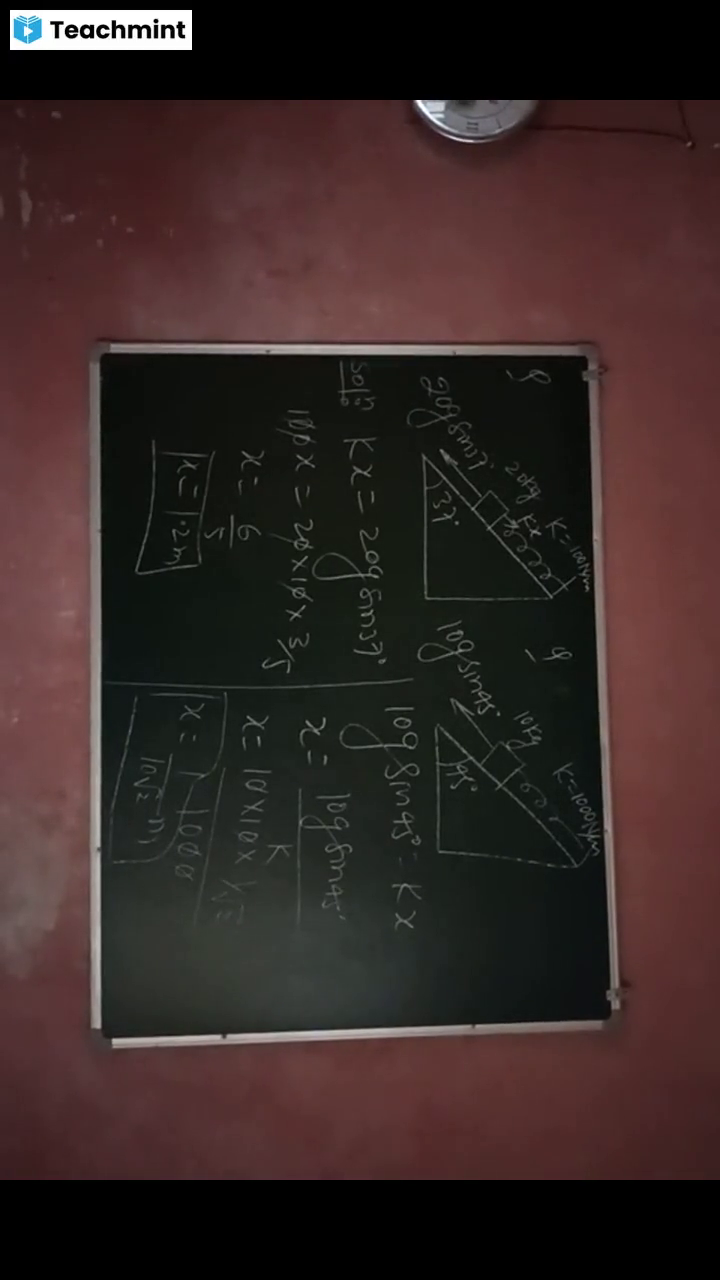 Teachmint
Q
K=100N/m
Kx
20kg
20g sin37°
37°
Soln Kx = 20g sin37°
100x = 20x10x 3/5
x = 6/5
x = 1.2m
Q
K=1000N/m
10kg
10g sin45°
45°
10g sin45° = Kx
x = 10g sin45° / K
x = 10x10x 1/√2 / 1000
x = 1 / 10√2 m